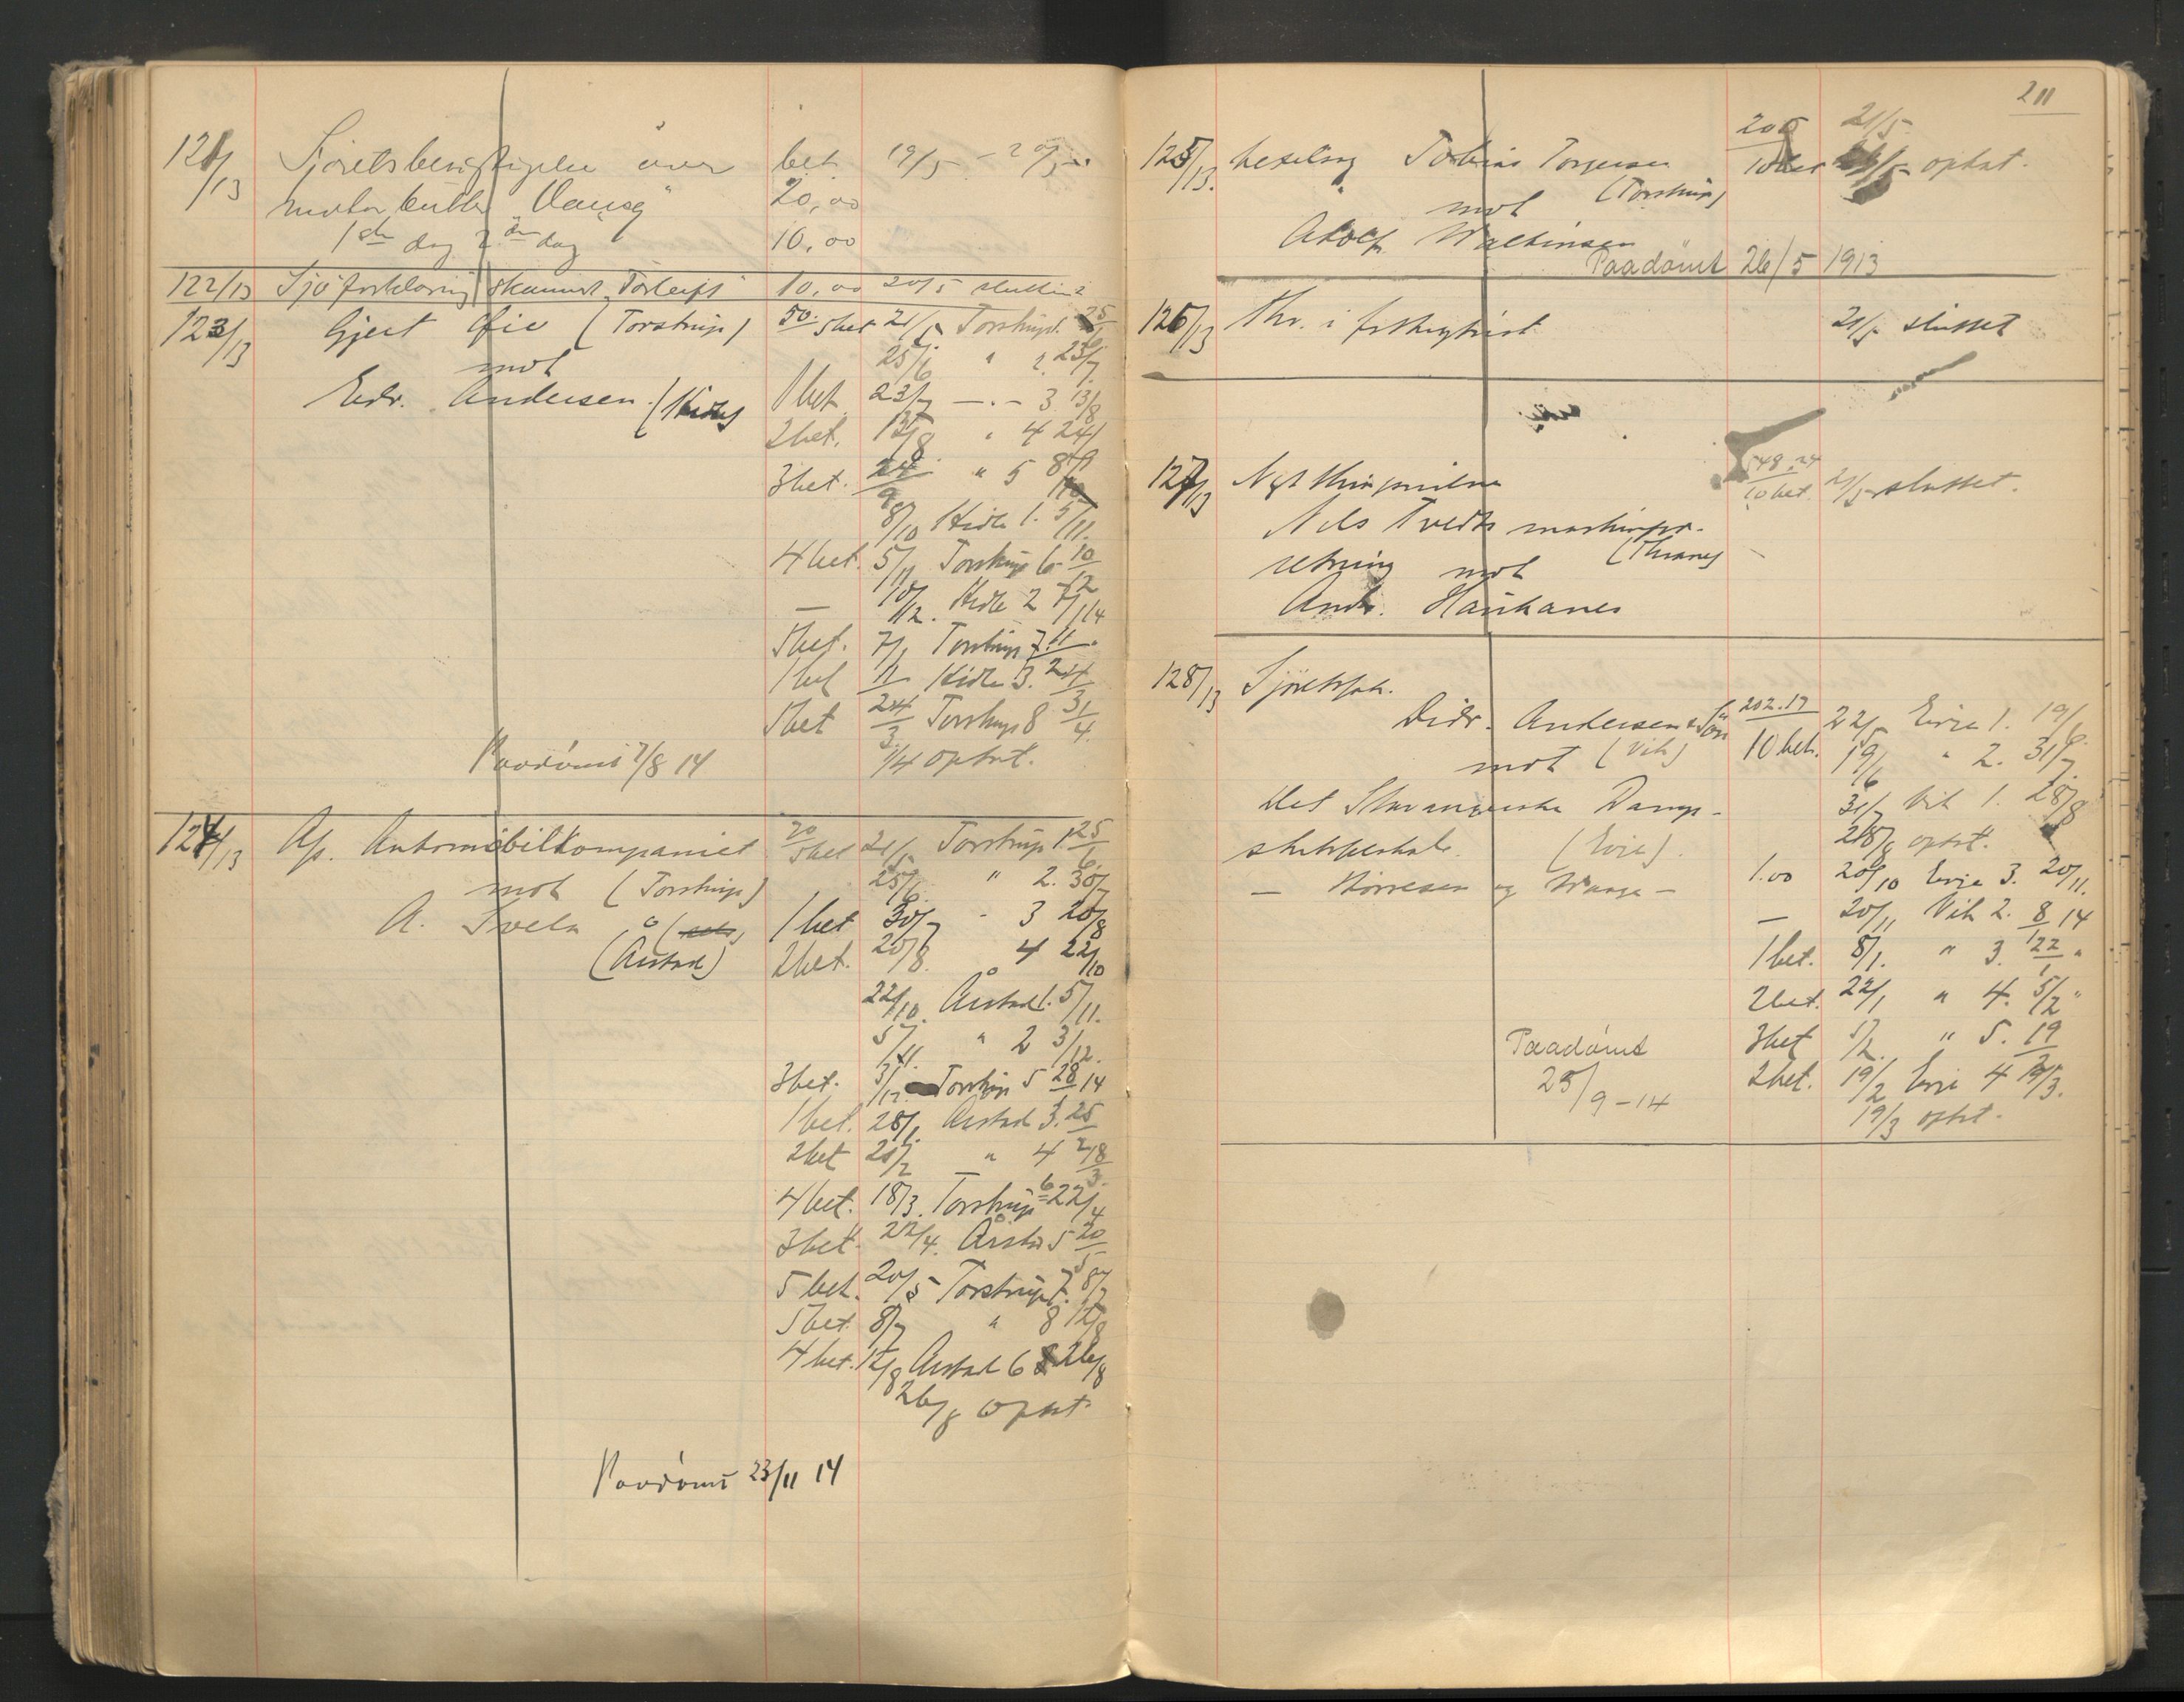 121/13 Sjøretsbesigtigelse over bet. 19/5 - 20/5
motorkutter "Vaasø" 20,00
1ste dag 2den dag 10,00
122/13 Sjøforklaring Torleif 10,00 20/5 sluttet
123/13 Gjert Øie (Torstrup) 50. 5 bet 21/5 Torstrup 1. 25/6
mot 25/6 " 2. 23/7
Edv. Andersen (Hidle) 1 bet 23/7 - " - 3 13/8
2 bet. 13/8 " 4 24/9
3 bet. 24/9 " 5 8/10
8/10 Hidle 1. 5/11.
4 bet. 5/11 Torstrup 6 10/12
— 10/12. Hidle 2 7/1 14
5 bet. 7/1 Torstrup 7.
1 bet Hidle 3. 24/3
5 bet 24/3 Torstrup 8 1/4
Paadømt 7/8 14 1/4 optat.
124/13 A/s. Automobilkompaniet 20 5 bet 21/5 Torstrup 1 25/6
mot (Torstrup) 25/6 " 2. 30/7
A. Svela 1 bet 30/7 - 3 20/8
(Årstad) 2 bet. 20/8. 4 22/10
22/10. Årstad 1. 5/11.
5/11. " 2 3/12.
3 bet. 3/12. Torstrup 5 28/1 14
1 bet. 28/1. Årstad 3. 25/2
2 bet 25/2 " 4 18/3.
4 bet. 18/3. Torstrup 6 22/4
3 bet. 22/4. Årstad 5 20/5
5 bet. 20/5 Torstrup 7. 8/7
5 bet 8/7 " 8 12/8
4 bet. 12/8 Årstad 6 26/8
26/8 optat
Paadømt 23/11 14
211
125/13. Vexelsag Tobias Torgersen 200 10 bet 21/5. optat.
mot (Torstrup)
Adolf
Paadømt 26/5 1913
126/13 21/5 sluttet
127/13 548.24 10 bet. 21/5 sluttet.
Nils Tvedts maskinfor-
retning mot (Thranes)
Andr. Haukanes
128/13 Sjøretssak.
Didr. Andersen & Søn 202.17 22/5 Evje 1. 19/6.
mot (Vik) 10 bet. 19/6 " 2. 31/7.
Det Stavangerske Damp- 31/7 Vik 1. 28/8
skibsselskab. (Evje). 28/8 optat.
— Børresen og Waage — 1.00 20/10 Evje 3. 20/11.
— 20/11 Vik 2. 8/1 14
1 bet. 8/1. " 3. 22/1 "
2 bet. 22/1 " 4. 5/2 "
Paadømt 3 bet 5/2. " 5. 19/2
25/9 - 14 2 bet. 19/2 Evje 4 19/3.
19/3 optat.